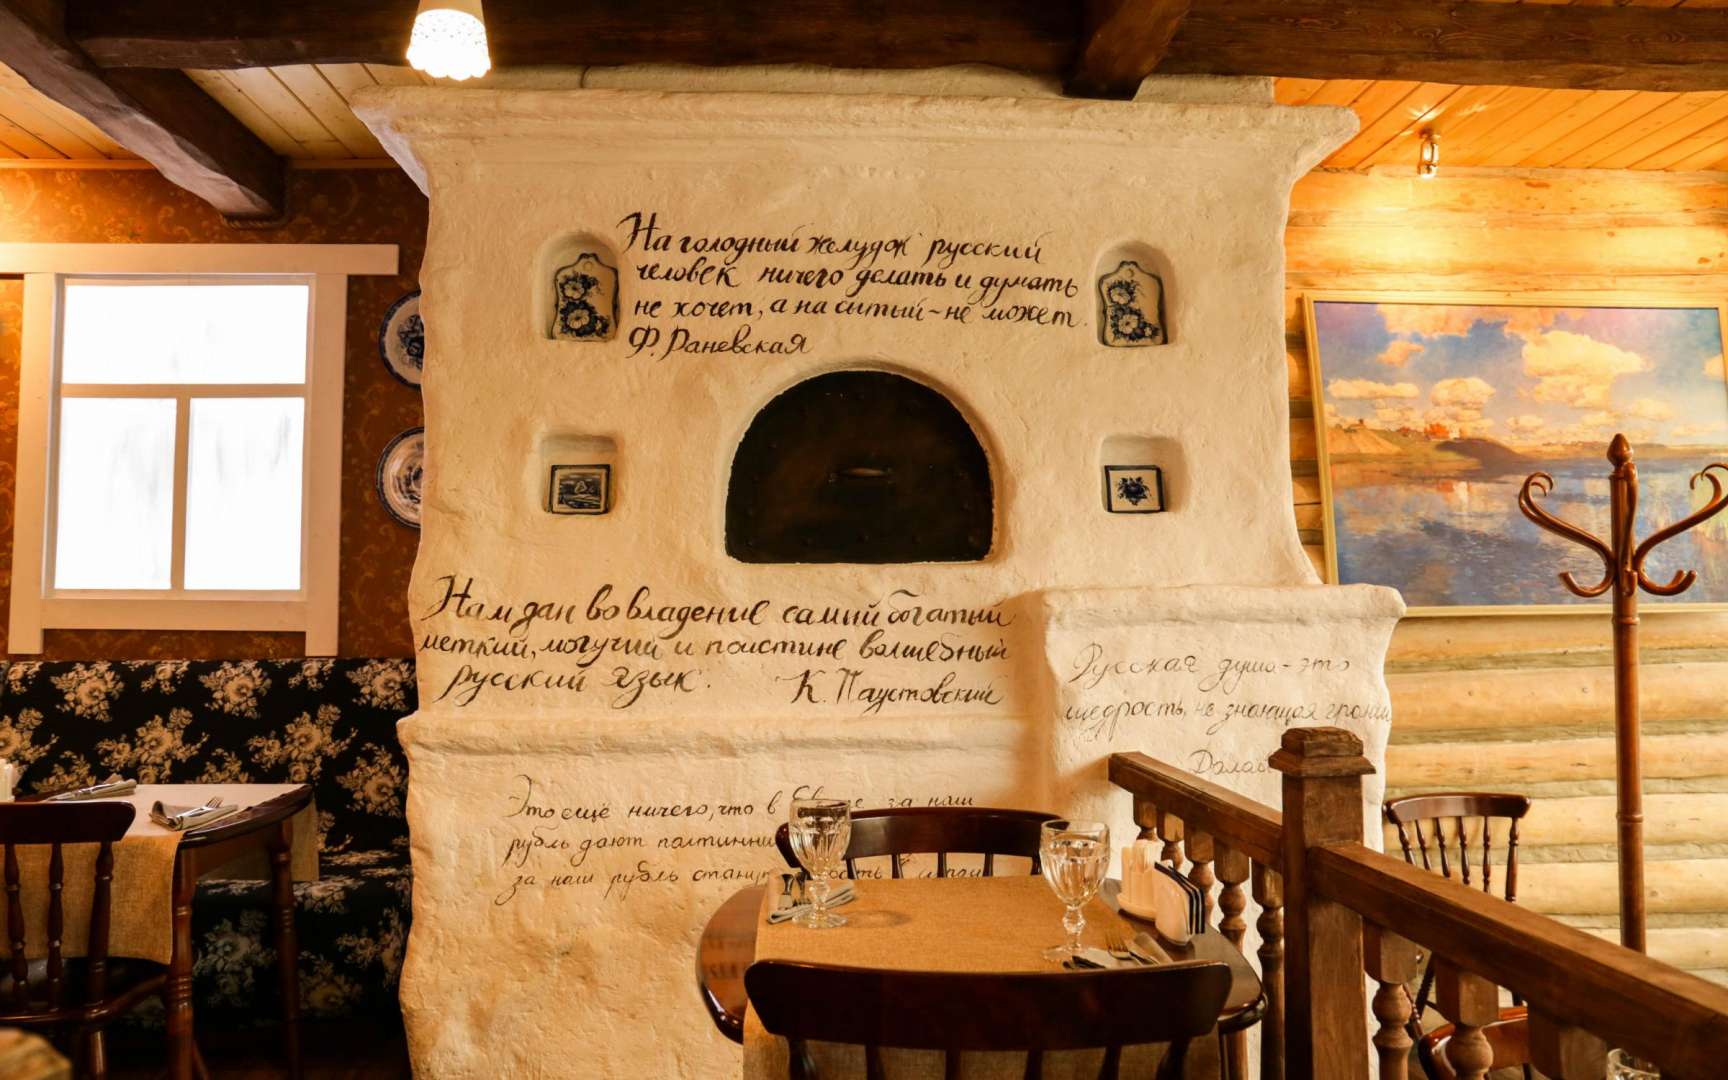 На голодный желудок русский
человек ничего делать и думать
не хочет, а на сытый - не может.
Ф. Раневская
Нам дан во владение самый богатый
меткий, могучий и поистине волшебный
русский язык.
К. Паустовский
Русская душа - это
щедрость, не знающая границ
Далай
Это ещё ничего, что в за наш
рубль дают
за наш рубль